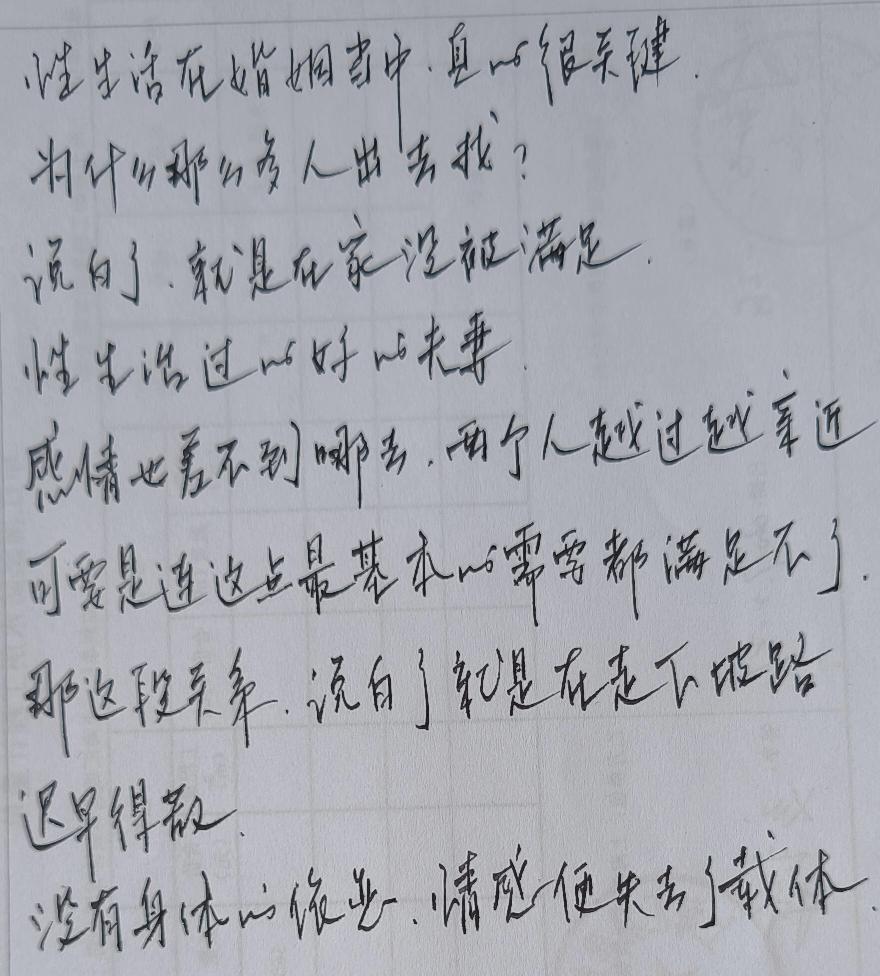 性生活在婚姻当中.真的很关键.
为什么那么多人出去找?
说白了.就是在家没被满足.
性生活过的好的夫妻.
感情也差不到哪去.两个人越过越亲近
可要是连这点最基本的需要都满足不了.
那这段关系.说白了就是在走下坡路
迟早得散.
没有身体的依恋.情感便失去了载体.